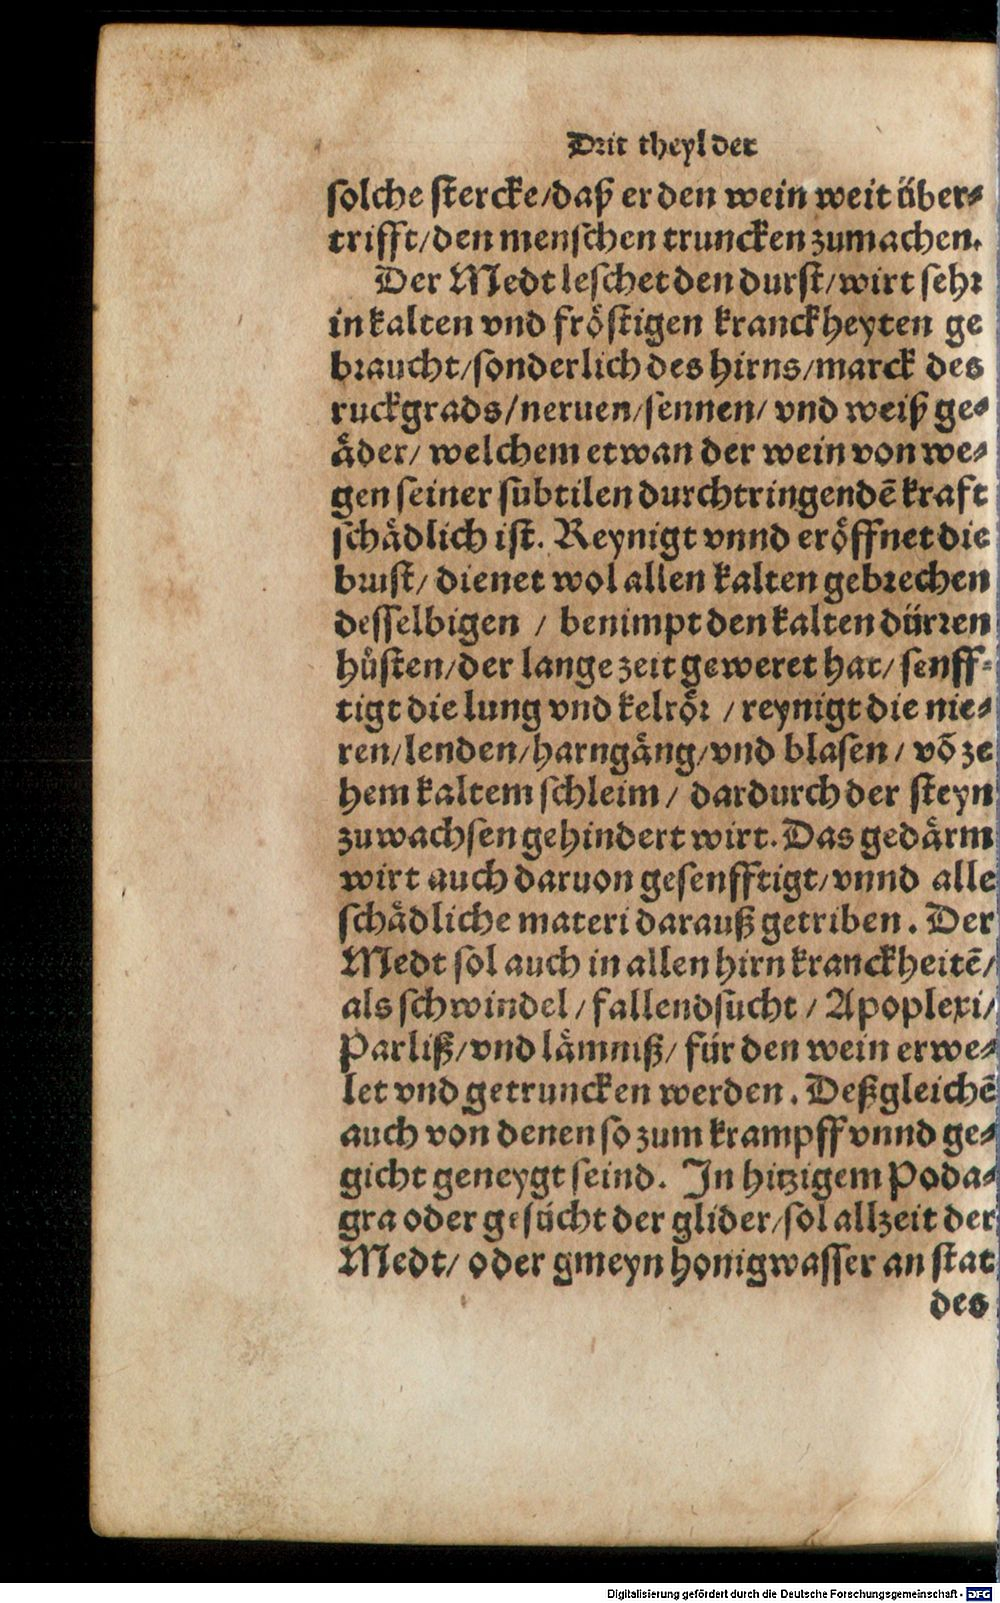 Drit theyl der
solche stercke/daß er den wein weit über⸗
trifft/den menschen truncken zumachen.
Der Medt leschet den durst/wirt sehr
in kalten vnd fröstigen kranckheyten ge
braucht/sonderlich des hirns/marck des
ruckgrads/neruen/sennen/ vnd weiß ge⸗
äder/ welchem etwan der wein von we⸗
gen seiner subtilen durchtringendē kraft
schädlich ist. Reynigt vnnd eröffnet die
brust/ dienet wol allen kalten gebrechen
desselbigen / benimpt den kalten dürren
hůsten/der lange zeit geweret hat/ senff⸗
tigt die lung vnd kelrör / reynigt die nie⸗
ren/lenden/harngäng/vnd blasen/ vō ze
hem kaltem schleim/ dardurch der steyn
zuwachsen gehindert wirt. Das gedärm
wirt auch daruon gesenfftigt/vnnd alle
schädliche materi darauß getriben. Der
Medt sol auch in allen hirn kranckheitē/
als schwindel/ fallendsucht / Apoplexi/
Parliß/vnd lämniß/ für den wein erwe⸗
let vnd getruncken werden. Deßgleichē
auch von denen so zum krampff vnnd ge⸗
gicht geneygt seind. In hitzigem Poda⸗
gra oder gesücht der glider/sol allzeit der
Medt/ oder gmeyn honigwasser an stat
des
Digitalisierung gefördert durch die Deutsche Forschungsgemeinschaft - DFG